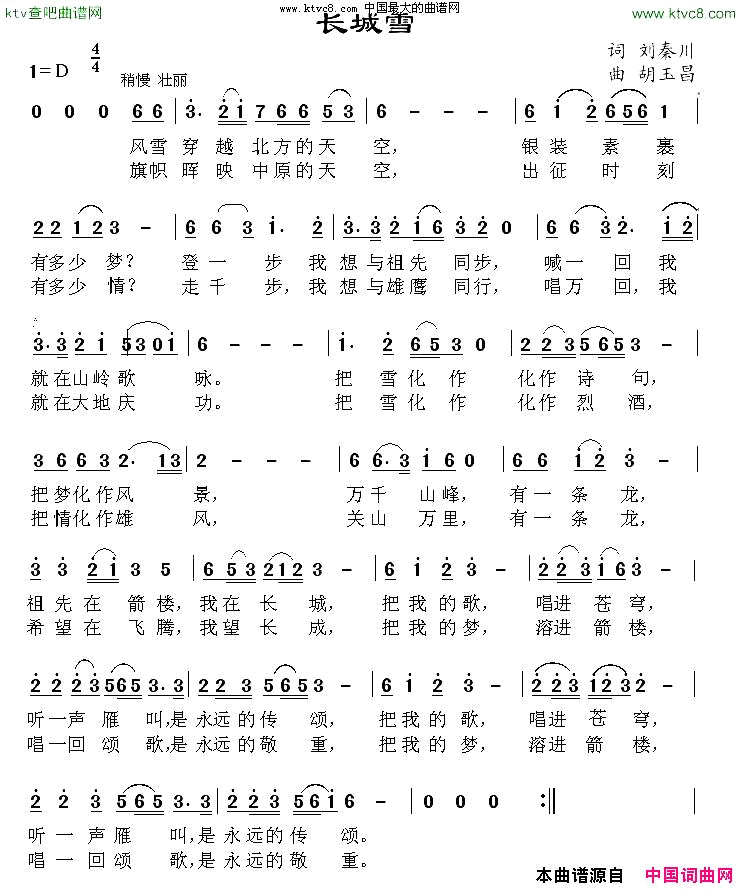 ktv查吧曲谱网
中国最大的曲谱网
www.ktvc8.com
http://www.ktvc8.com
长城雪
1=D 4/4
词 刘秦川
曲 胡玉昌
稍慢 壮丽
0 0 0 6 6 | 3. 2 1 7 6 6 5 3 | 6 - - - | 6 1 2 2 6 5 6 1 |
风雪 穿 越 北方的天 空， 银 装 素 裹
旗帜 晖 映 中原的天 空， 出 征 时 刻
2 2 1 2 3 - | 6 6 3 1. 2 | 3. 3 2 1 6 3 2 0 | 6 6 3 2. 1 2 |
有多少 梦？ 登 一 步 我 想与祖先 同步， 喊一 回我
有多少 情？ 走 千 步，我 想与雄鹰 同行， 唱万 回，我
3. 3 2 1 5 3 0 1 | 6 - - - | 1. 2 6 5 3 0 | 2 2 3 5 6 5 3 |
就在山岭歌 咏。 把 雪化 作 化作 诗 句，
就在大地庆 功。 把 雪化 作 化作 烈 酒，
3 6 6 3 2. 1 3 | 2 - - - | 6 6. 3 1 6 0 | 6 6 1 2 3 - |
把梦化作风 景， 万千 山峰， 有一 条 龙，
把情化作雄 风， 关山 万里， 有一 条 龙，
3 3 2 1 3 5 | 6 5 3 2 1 2 3 - | 6 1 2 3 - | 2 2 3 1 6 3 - |
祖 先 在 箭 楼，我在 长 城， 把 我 的 歌， 唱进 苍 穹，
希 望 在 飞 腾，我望 长 成， 把 我 的 梦， 溶进 箭 楼，
2 2 2 3 5 6 5 3. 3 | 2 2 3 5 6 5 3 - | 6 1 2 3 - | 2 2 3 1 2 3 2 - |
听一声 雁 叫，是 永远的传 颂， 把 我 的 歌， 唱进 苍 穹，
唱一回 颂 歌，是 永远的敬 重， 把 我 的 梦， 溶进 箭 楼，
2 2 3 5 6 5 3. 3 | 2 2 3 5 6 1 6 - | 0 0 0 :||
听 一 声 雁 叫，是 永远的传 颂。
唱 一 回 颂 歌，是 永远的敬 重。
本曲谱源自 中国词曲网